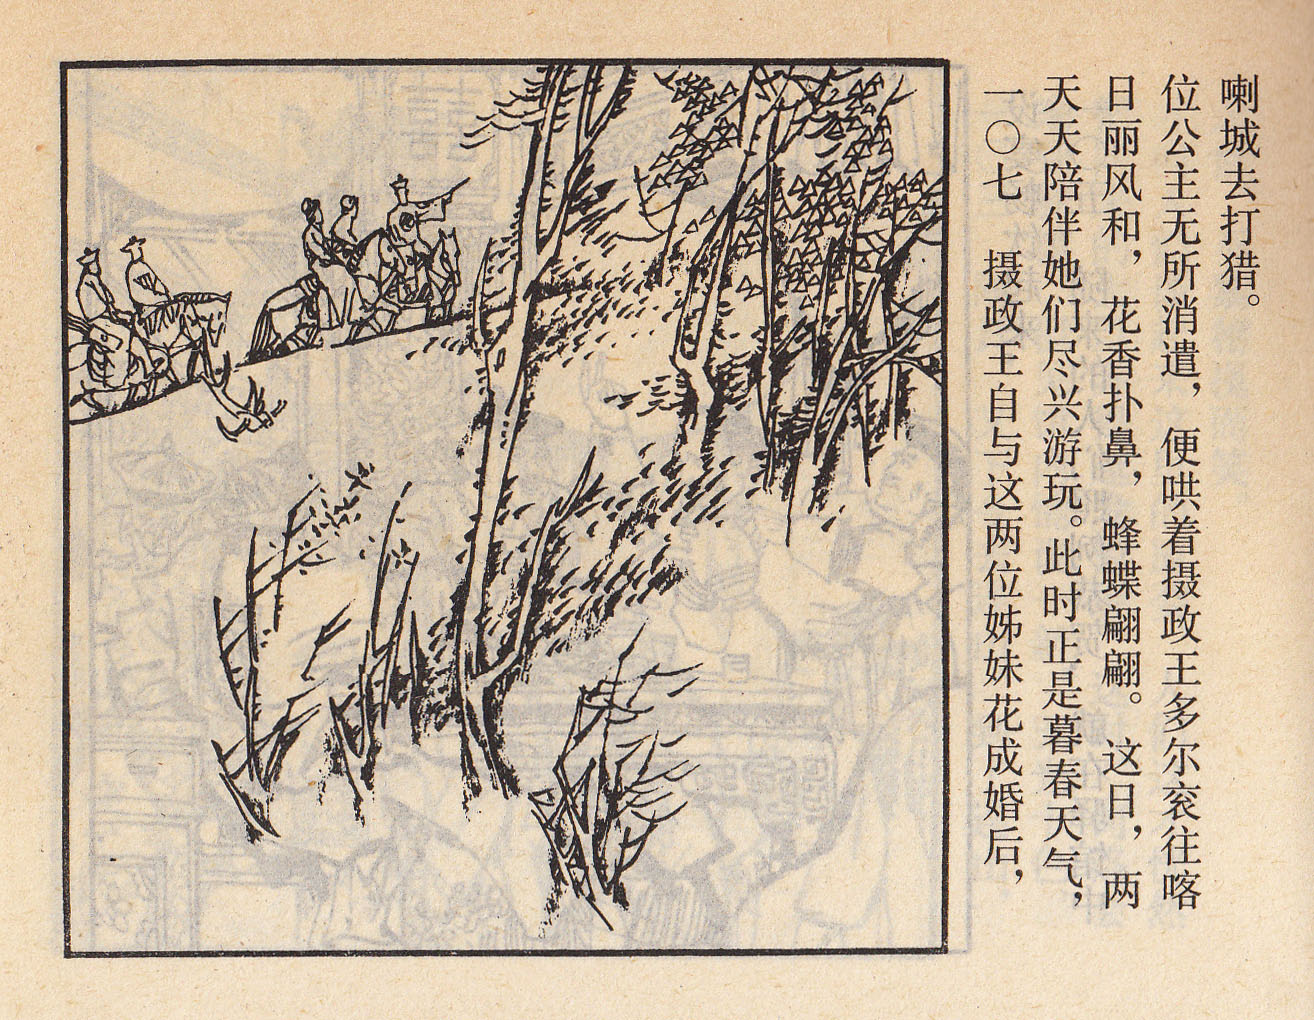 一〇七 摄政王自与这两位姊妹花成婚后，
天天陪伴她们尽兴游玩。此时正是暮春天气，
日丽风和，花香扑鼻，蜂蝶翩翩。这日，两
位公主无所消遣，便哄着摄政王多尔衮往喀
喇城去打猎。